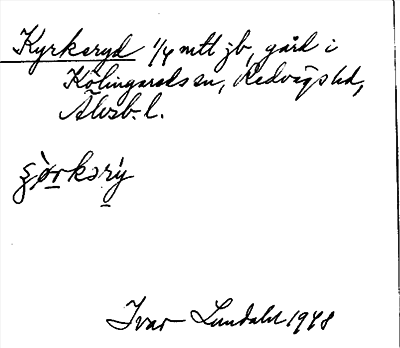 Kyrkeryd 1/4 mtl jb, gård i
Kölingareds sn, Redvägs hd,
Älvsb. l.
ʂòrkərý
Ivar Lundahl 1948